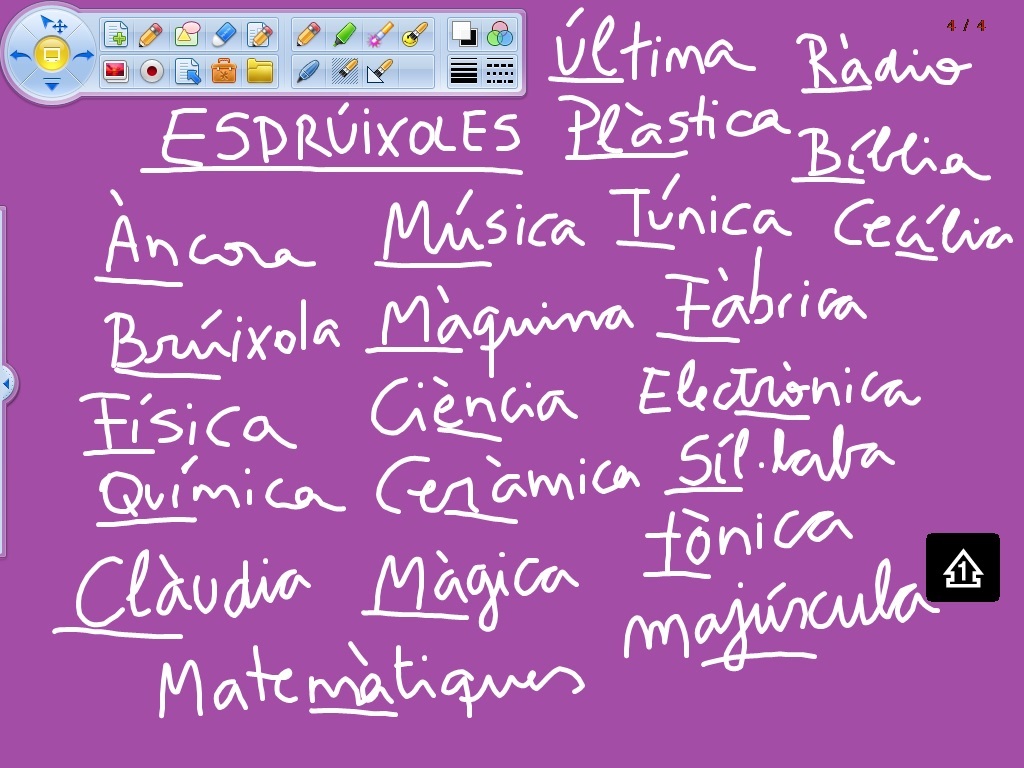 4 / 4
Última Ràdio
ESDRÚIXOLES Plàstica Bíblia
Àncora Música Túnica Cecília
Brúixola Màquina Fàbrica
Física Ciència Electrònica
Química Ceràmica Síl·laba
tònica
Clàudia Màgica majúscula
Matemàtiques
1